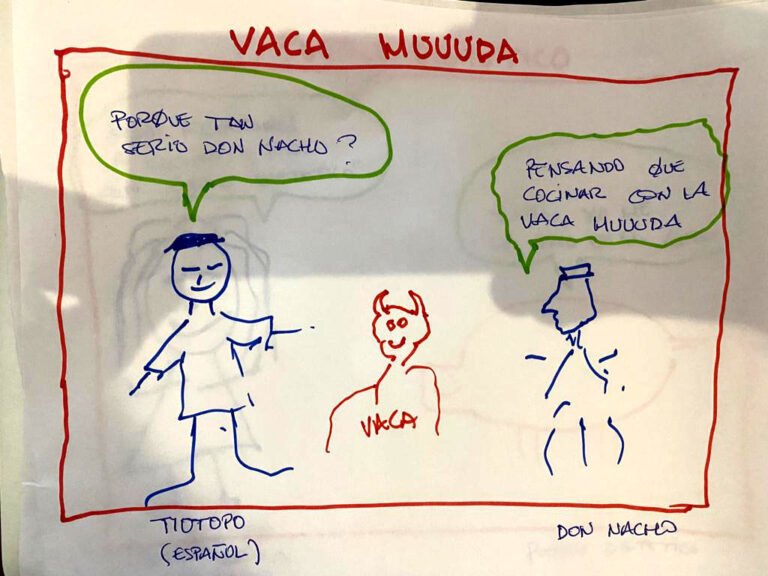 VACA MUUUDA
PORQUE TAN
SERIO DON NACHO?
PENSANDO QUE
COCINAR CON LA
VACA MUUUDA
VACA
TIOTOPO
(ESPAÑOL)
DON NACHO